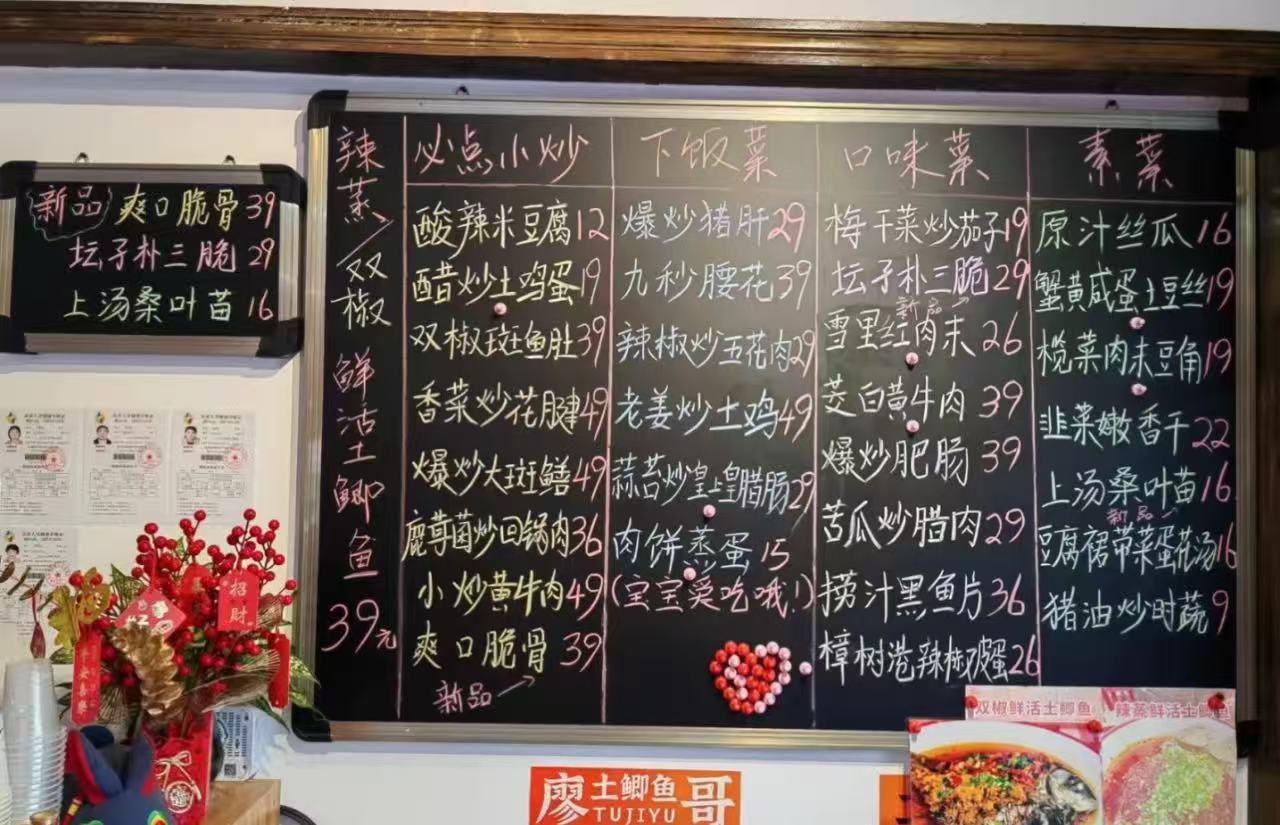 新品 爽口脆骨 39
坛子朴三脆 29
上汤桑叶苗 16
辣蒸/双椒 鲜活土鲫鱼 39元
必点小炒
酸辣米豆腐 12
醋炒土鸡蛋 19
双椒斑鱼肚 39
香菜炒花腱 49
爆炒大斑鳝 49
鹿茸菌炒回锅肉 36
小炒黄牛肉 49
爽口脆骨 39
新品
下饭菜
爆炒猪肝 29
九秒腰花 39
辣椒炒五花肉 29
老姜炒土鸡 49
蒜苔炒皇上皇腊肠 29
肉饼蒸蛋 15
(宝宝爱吃哦!)
口味菜
梅干菜炒茄子 19
坛子朴三脆 29
新品
雪里红肉末 26
茭白黄牛肉 39
爆炒肥肠 39
苦瓜炒腊肉 29
捞汁黑鱼片 36
樟树港辣椒双蛋 26
素菜
原汁丝瓜 16
蟹黄咸蛋土豆丝 19
榄菜肉末豆角 19
韭菜嫩香干 22
上汤桑叶苗 16
新品
豆腐裙带菜蛋花汤 16
猪油炒时蔬 9
招财
双椒鲜活土鲫鱼
辣蒸鲜活土鲫鱼
廖 土鲫鱼 哥
TUJIYU